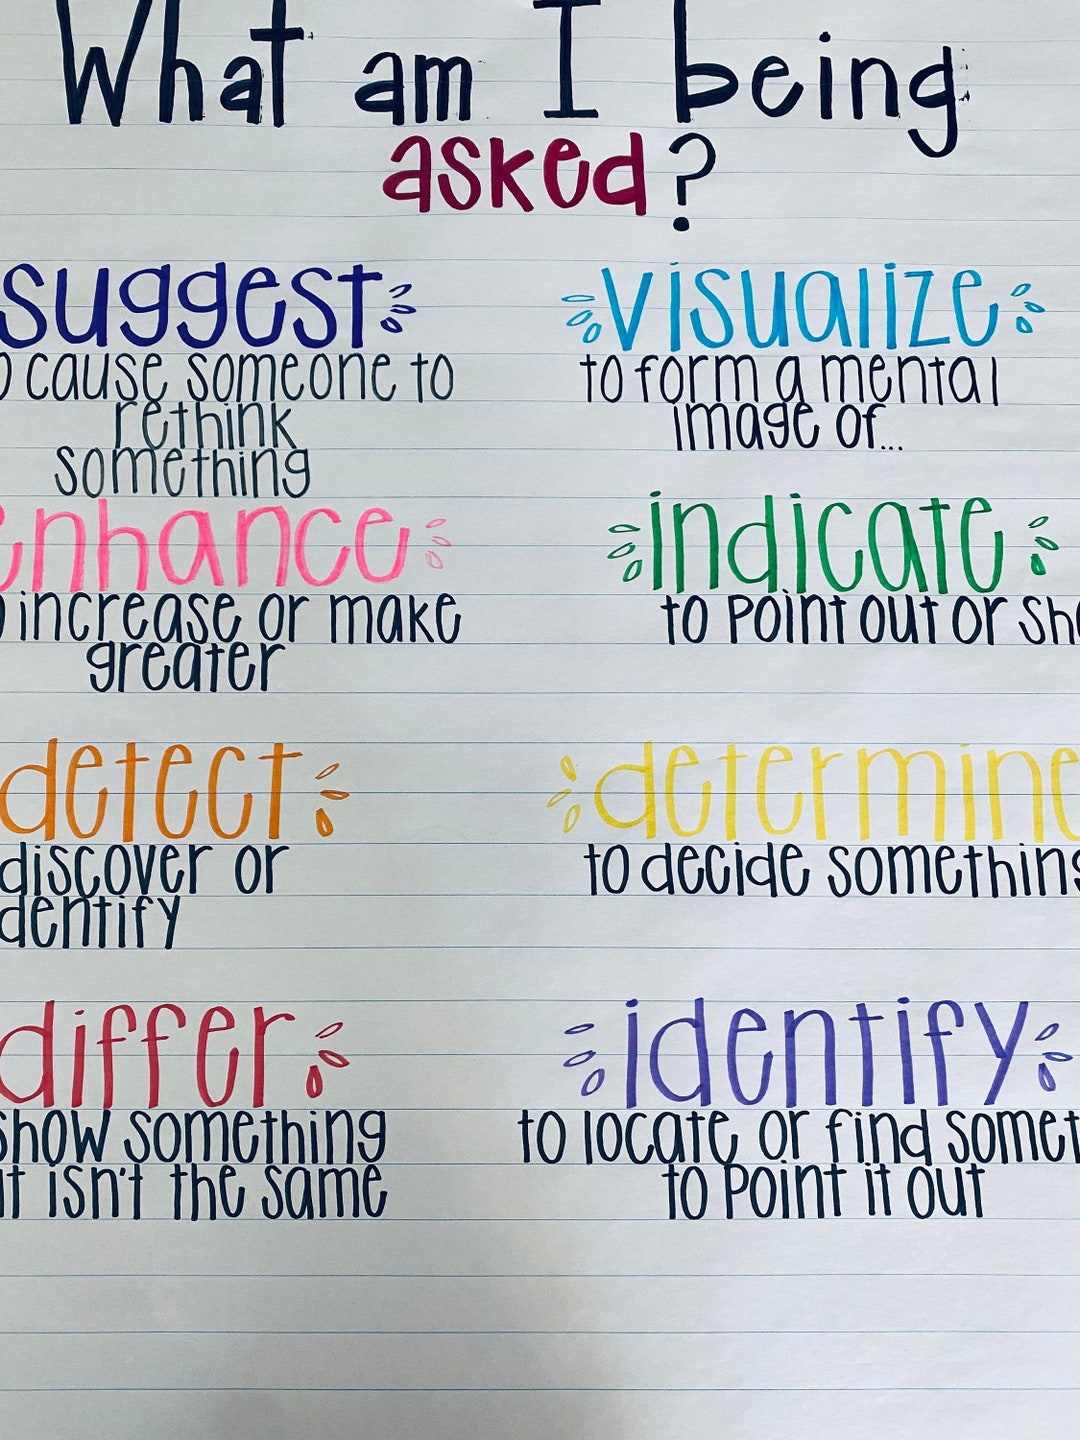 What am I being
asked?
suggest
cause someone to
rethink
something
visualize
to form a mental
image of...
enhance
increase or make
greater
indicate
to point out or
detect
discover or
identify
determine
to decide something
differ
show something
isn't the same
identify
to locate or find
to point it out